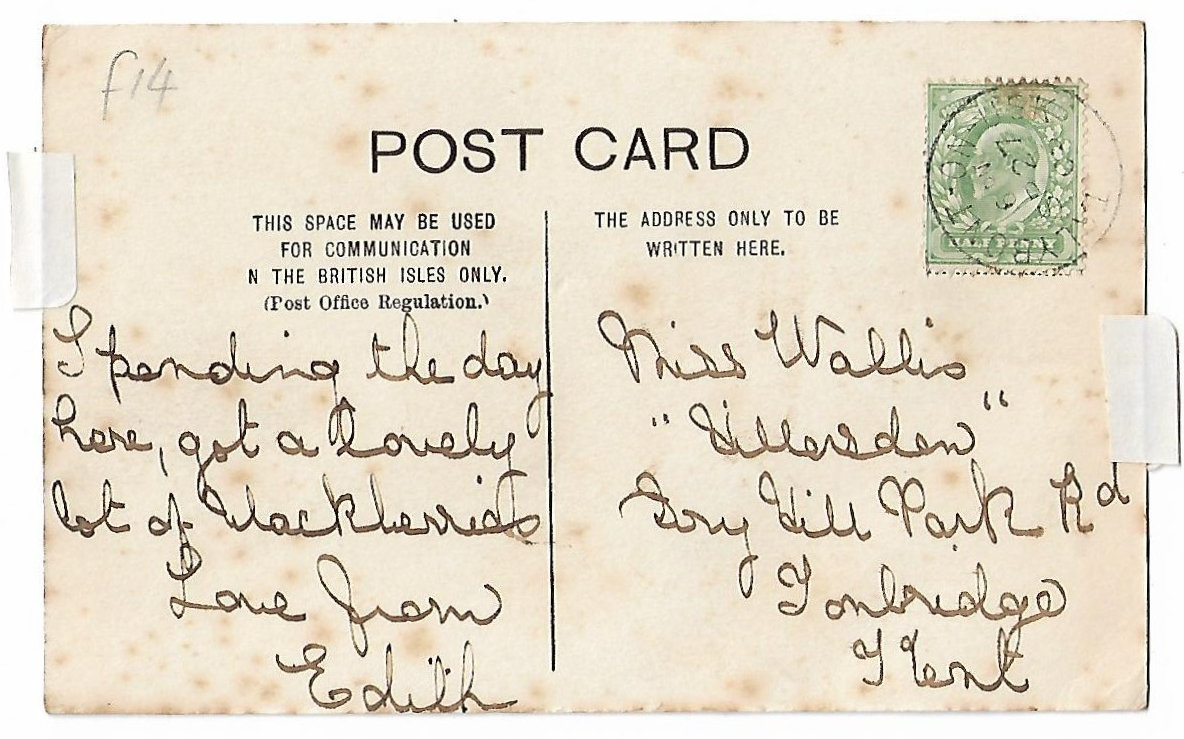 £14
POST CARD
THIS SPACE MAY BE USED
FOR COMMUNICATION
N THE BRITISH ISLES ONLY.
(Post Office Regulation.)
THE ADDRESS ONLY TO BE
WRITTEN HERE.
HALF PENNY
Spending the day
here, got a lovely
lot of blackberries
Love from
Edith
Miss Wallis
"Hillersden"
Dry Hill Park Rd
Tonbridge
Kent